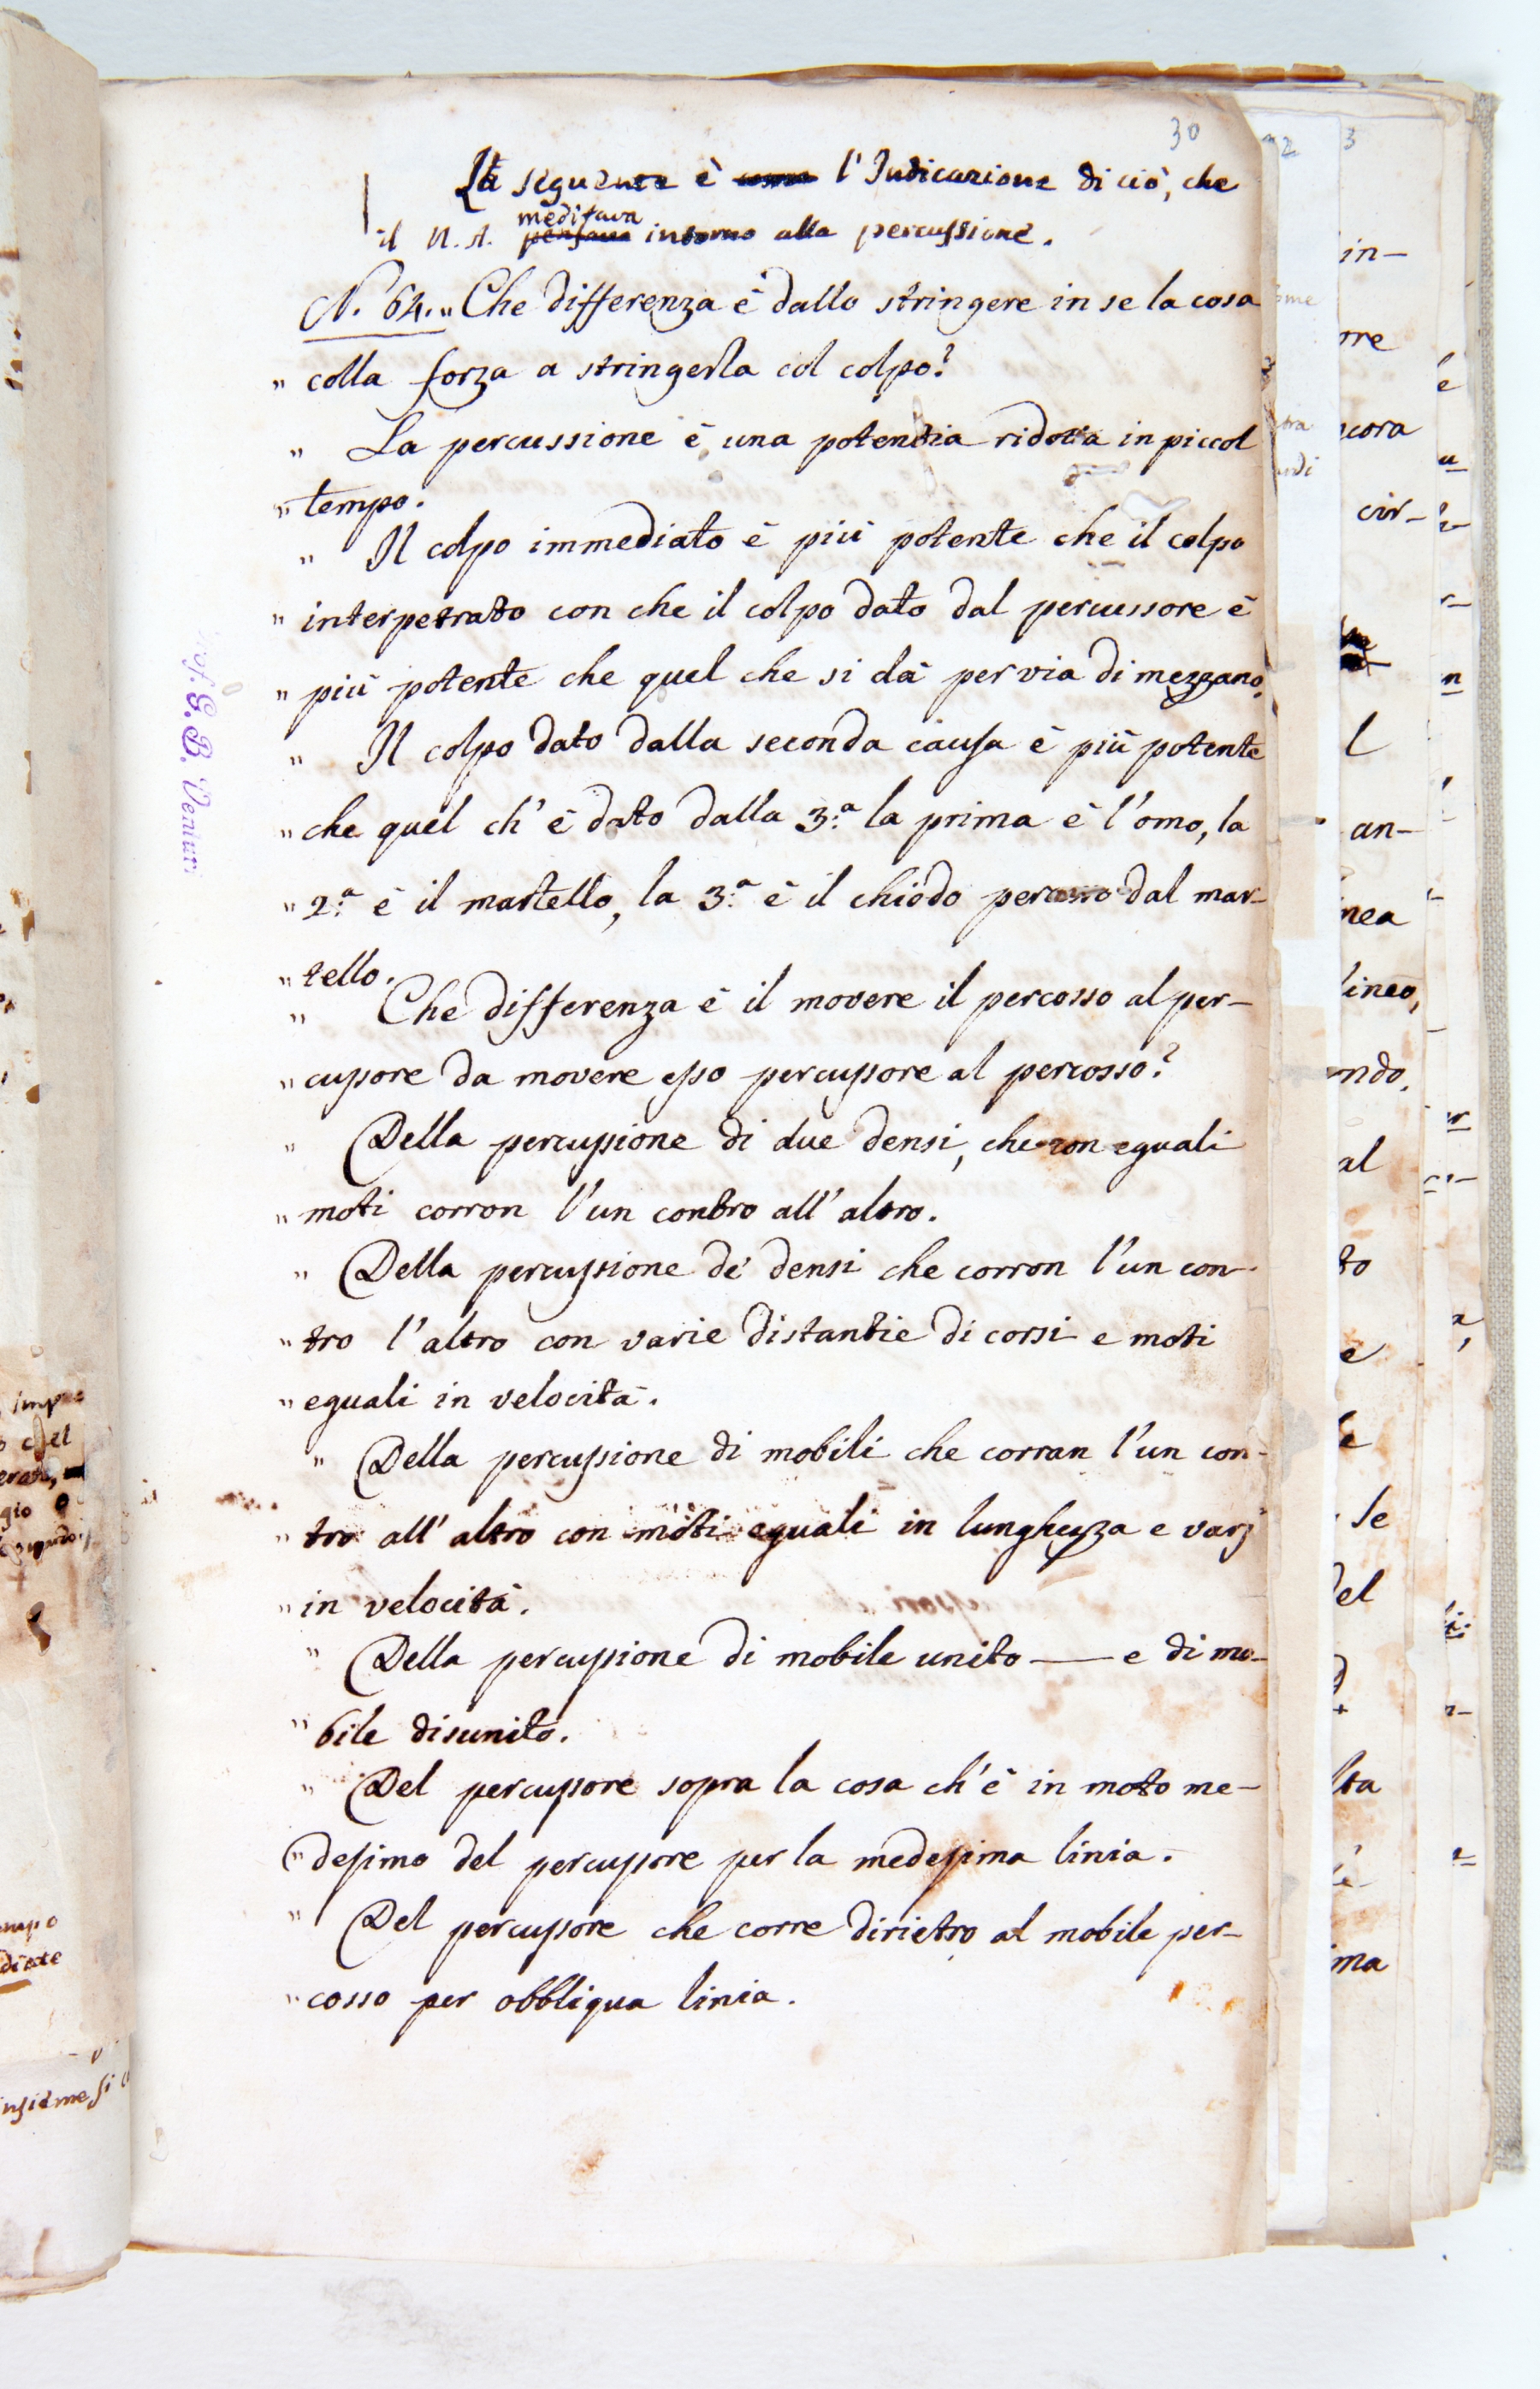 30
La seguente è l'Indicazione di ciò, che
meditava
il N. A. pensava intorno alla percussione.
N. 64. „ Che differenza è dallo stringere in se la cosa
„ colla forza a stringerla col colpo?
„ La percussione è una potentia ridotta in piccol
„ tempo.
„ Il colpo immediato è più potente che il colpo
„ interpetrato con che il colpo dato dal percussore è
„ più potente che quel che si dà per via di mezzano.
„ Il colpo dato dalla seconda causa è più potente
„ che quel ch'è dato dalla 3.ª la prima è l'omo, la
„ 2.ª è il martello, la 3.ª è il chiodo percosso dal mar-
„ tello.
„ Che differenza è il movere il percosso al per-
„ cussore da movere esso percussore al percosso?
„ Della percussione di due densi, che con eguali
„ moti corron l'un contro all'altro.
„ Della percussione de' densi che corron l'un con-
„ tro l'altro con varie distantie di corsi e moti
„ eguali in velocità.
„ Della percussione di mobili che corran l'un con-
„ tro all'altro con moti eguali in lunghezza e varj
„ in velocità.
„ Della percussione di mobile unito — e di mo-
„ bile disunito.
„ Del percussore sopra la cosa ch'è in moto me-
„ desimo del percussore per la medesima linia.
„ Del percussore che corre dirietro al mobile per-
„ cosso per obbliqua linia.
Prof. G. B. Venturi